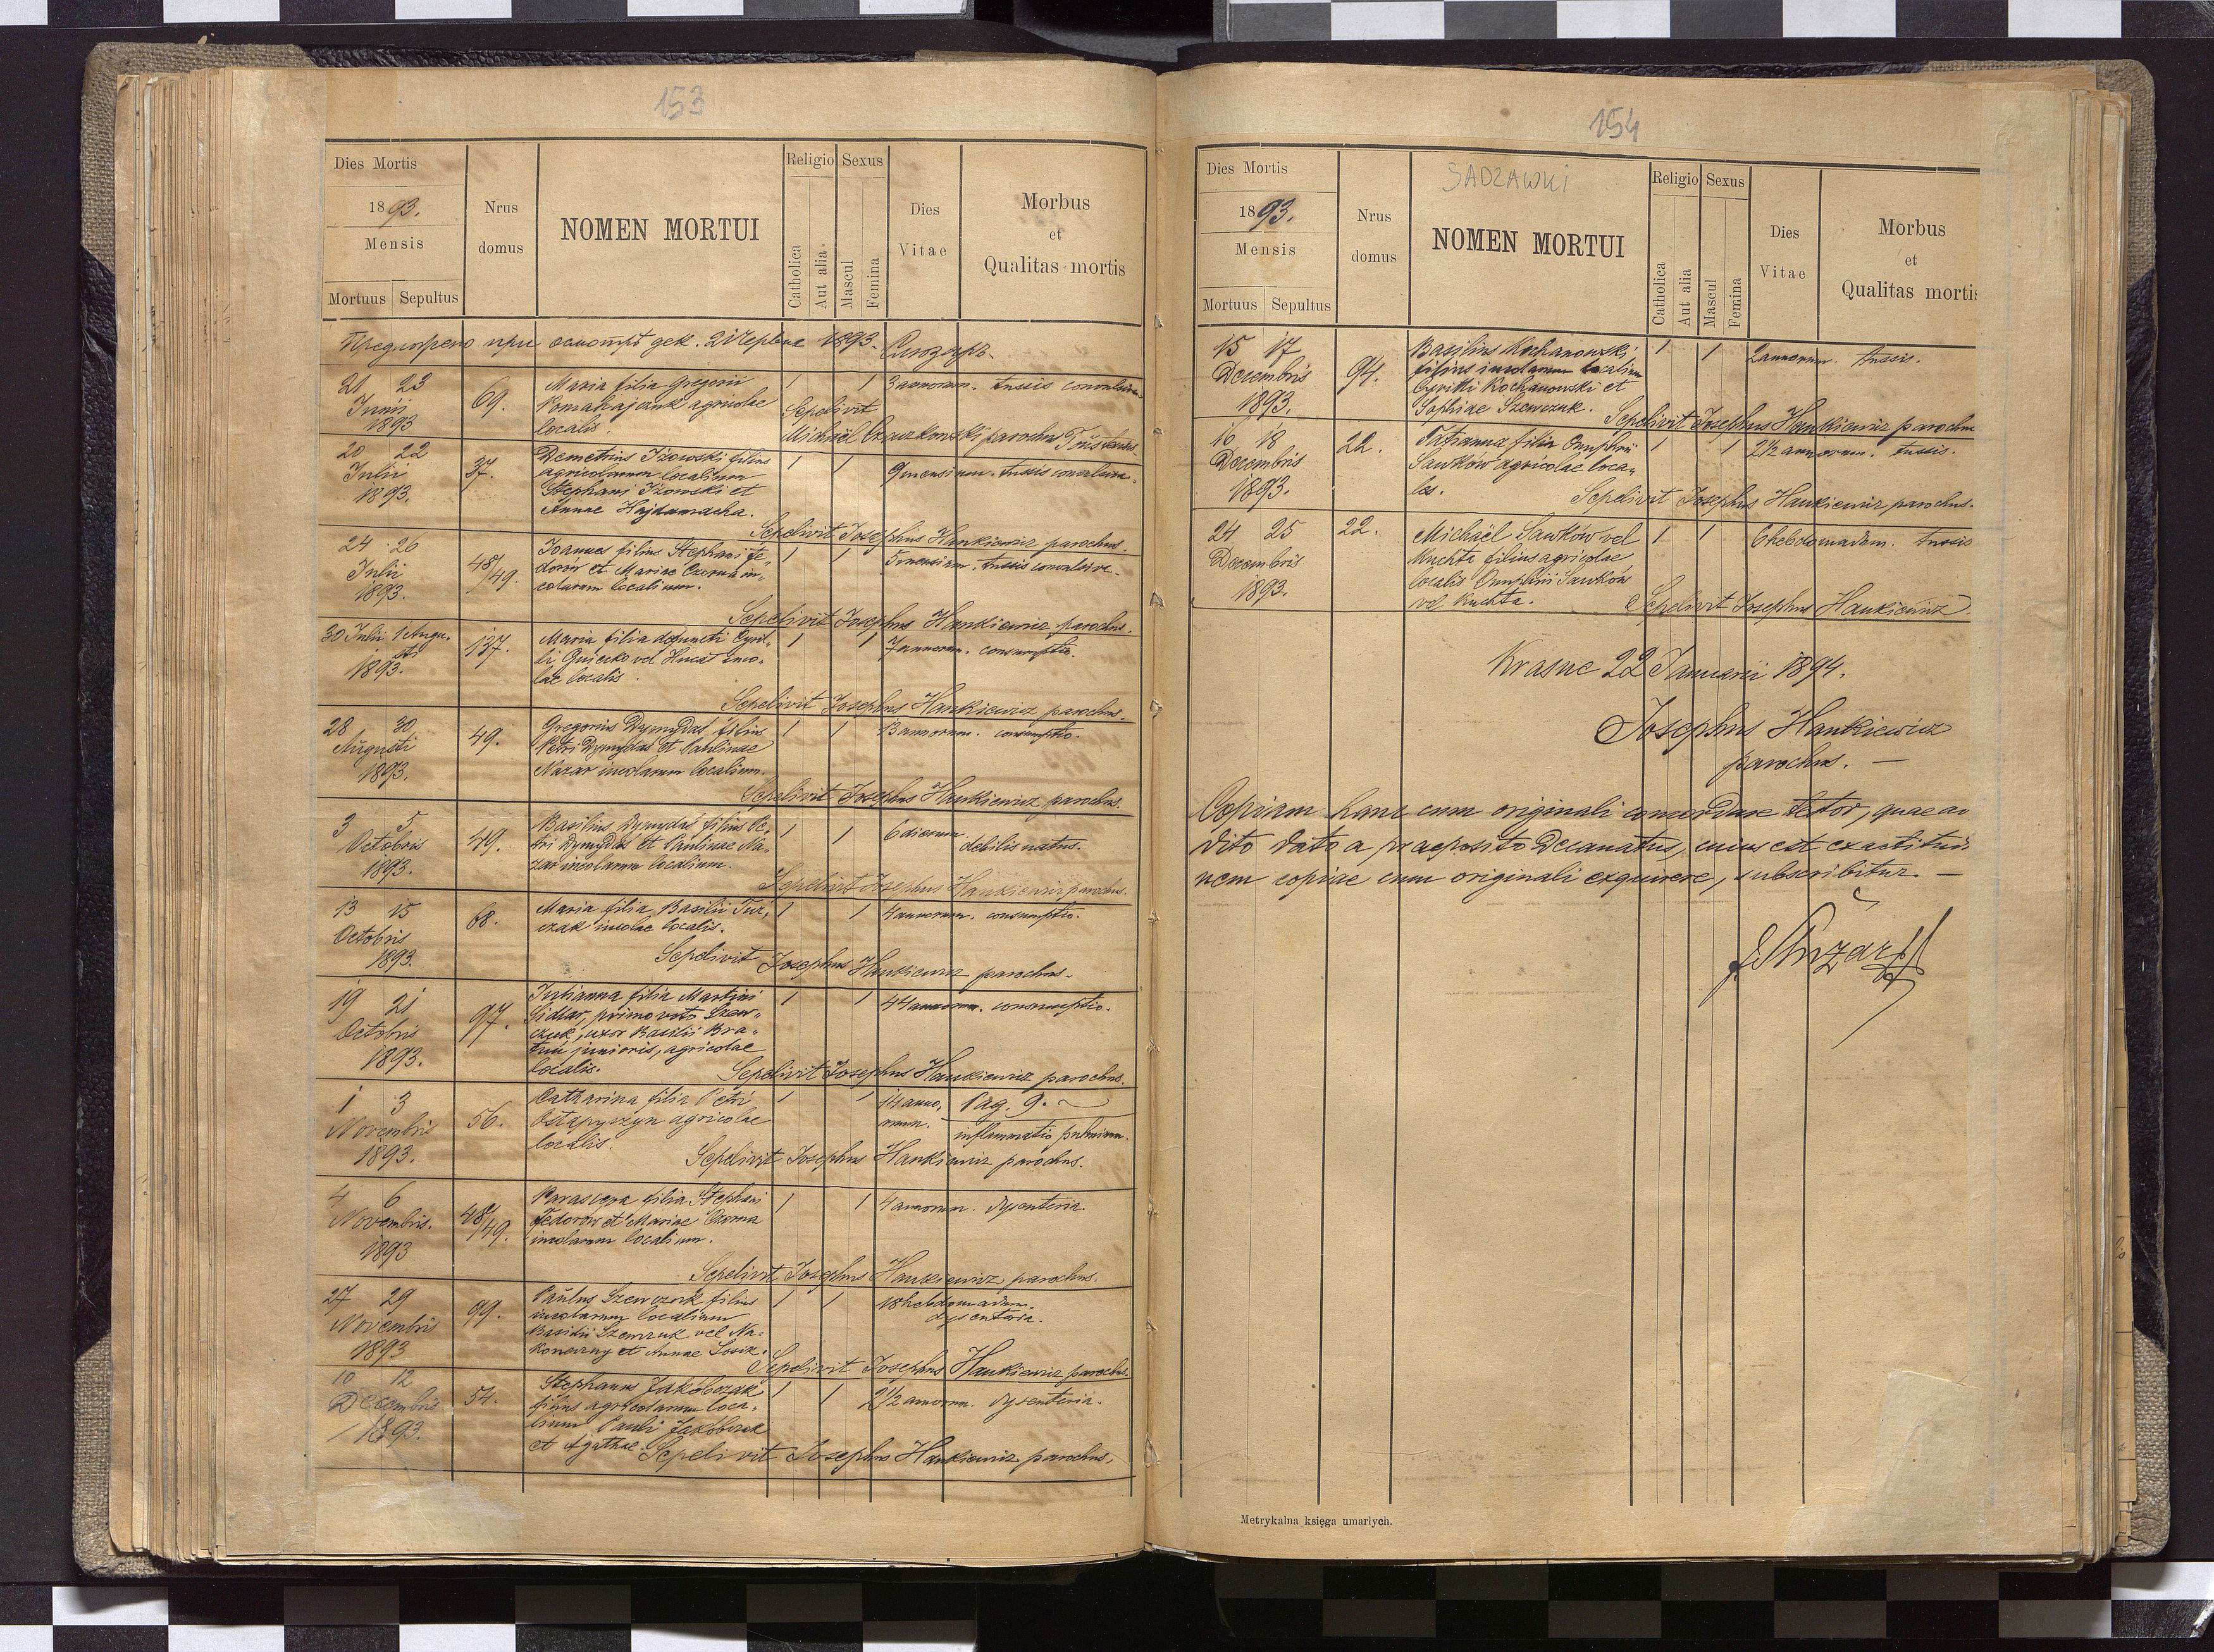 153
Dies Mortis
1893.
Mensis
Mortuus Sepultus
Nrus domus
NOMEN MORTUI
Religio
Catholica
Aut alia
Sexus
Mascul
Femina
Dies Vitae
Morbus
et
Qualitas mortis
21 23
Junii
1893
69.
Maria filia Gregorii
agricolae
localis.
1 1
3 annorum. tussis convulsiva.
Sepelivit
Michaël parochus
20 22
Julii
1893.
37.
Demetrius Iżowski filius
agricolarum localium
Stephani Iżowski et
Annae Hajdamacha.
1 1
9 mensium. tussis convulsiva.
Sepelivit Josephus Hankiewicz parochus.
24 26
Julii
1893.
48/49.
Joannes filius Stephani Fe-
dorów et Mariae Czorna in-
colarum localium.
1 1
5 mensium. tussis convulsiva.
Sepelivit Josephus Hankiewicz parochus.
30 Julii 1 Augu-
sti
1893.
137.
Maria filia defuncti Cyril-
li vel inco-
lae localis.
1 1
7 annorum. consumptio.
Sepelivit Josephus Hankiewicz parochus.
28 30
Augusti
1893.
49.
Gregorius Dymydas filius
Petri Dymydas et Paulinae
Nazar incolarum localium.
1 1
annorum. consumptio.
Sepelivit Josephus Hankiewicz parochus.
3 5
Octobris
1893.
49.
Basilius Dymydas filius Pe-
tri Dymydas et Paulinae Na-
zar incolarum localium.
1 1
6 dierum.
debilis natus.
Sepelivit Josephus Hankiewicz parochus.
13 15
Octobris
1893.
68.
Maria filia Basilii Tur-
czak incolae localis.
1 1
4 annorum. consumptio.
Sepelivit Josephus Hankiewicz parochus.
19 21
Octobris
1893.
97.
Julianna filia Martini
primo voto Szew-
czuk, uxor Basilii
junioris, agricolae
localis.
1 1
44 annorum. consumptio.
Sepelivit Josephus Hankiewicz parochus.
1 3
Novembris
1893.
56.
Catharina filia Petri
Ostapyczyn agricolae
localis.
1 1
14 anno-
rum.
Pag. 9.
inflammatio pulmonum.
Sepelivit Josephus Hankiewicz parochus.
4 6
Novembris.
1893
48/49.
Parasceva filia Stephani
Fedorów et Mariae Czorna
incolarum localium.
1 1
4 annorum. dysenteria.
Sepelivit Josephus Hankiewicz parochus.
27 29
Novembris
1893
99.
Paulus Szewczuk filius
incolarum localium
Basilii Szewczuk vel Na-
koneczny et Annae
1 1
18 hebdomadum.
dysenteria.
Sepelivit Josephus Hankiewicz parochus.
10 12
Decembris
1893.
54.
Stephanus Jakóbczak
filius agricolarum loca-
lium Pauli Jakóbczak
et Agathae.
1 1
2 1/2 annorum. dysenteria.
Sepelivit Josephus Hankiewicz parochus.
154
Dies Mortis
1893.
Mensis
Mortuus Sepultus
Nrus domus
SADZAWKI
NOMEN MORTUI
Religio
Catholica
Aut alia
Sexus
Mascul
Femina
Dies Vitae
Morbus
et
Qualitas mortis
15 17
Decembris
1893.
94.
Basilius Kochanowski,
filius incolarum localium
Cyrilli Kochanowski et
Sophiae Szewczuk.
1 1
2 annorum. tussis.
Sepelivit Josephus Hankiewicz parochus
16 18
Decembris
1893.
22.
Tatianna filia Onuphrii
Sawków agricolae loca-
lis.
1 1
2 1/2 annorum. tussis.
Sepelivit Josephus Hankiewicz parochus.
24 25
Decembris
1893.
22.
Michaël Sawków vel
Kuchta filius agricolae
localis Onuphrii Sawków
vel Kuchta.
1 1
6 hebdomadum. tussis
Sepelivit Josephus Hankiewicz
Krasne 22 Januarii 1894.
Josephus Hankiewicz
parochus. —
Copiam hanc cum originali concordare testor, quae
dito dato a praeposito Decanatus, cuius est
nem copiae cum originali exquirere, subscribitur. —
Metrykalna księga umarłych.